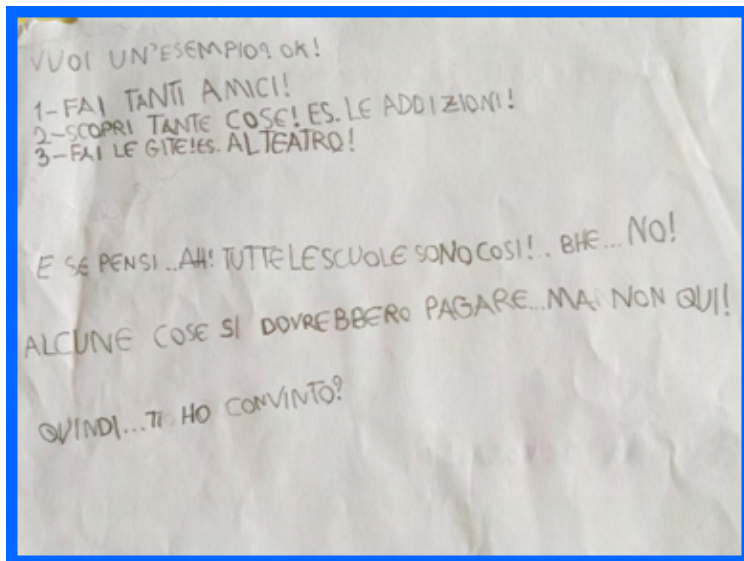 VUOI UN'ESEMPIO? OK!
1-FAI TANTI AMICI!
2-SCOPRI TANTE COSE! ES. LE ADDIZIONI!
3-FAI LE GITE! ES. AL TEATRO!
E SE PENSI..AH! TUTTE LE SCUOLE SONO COSI!.. BHE... NO!
ALCUNE COSE SI DOVREBBERO PAGARE...MA NON QUI!
QUINDI...TI HO CONVINTO?